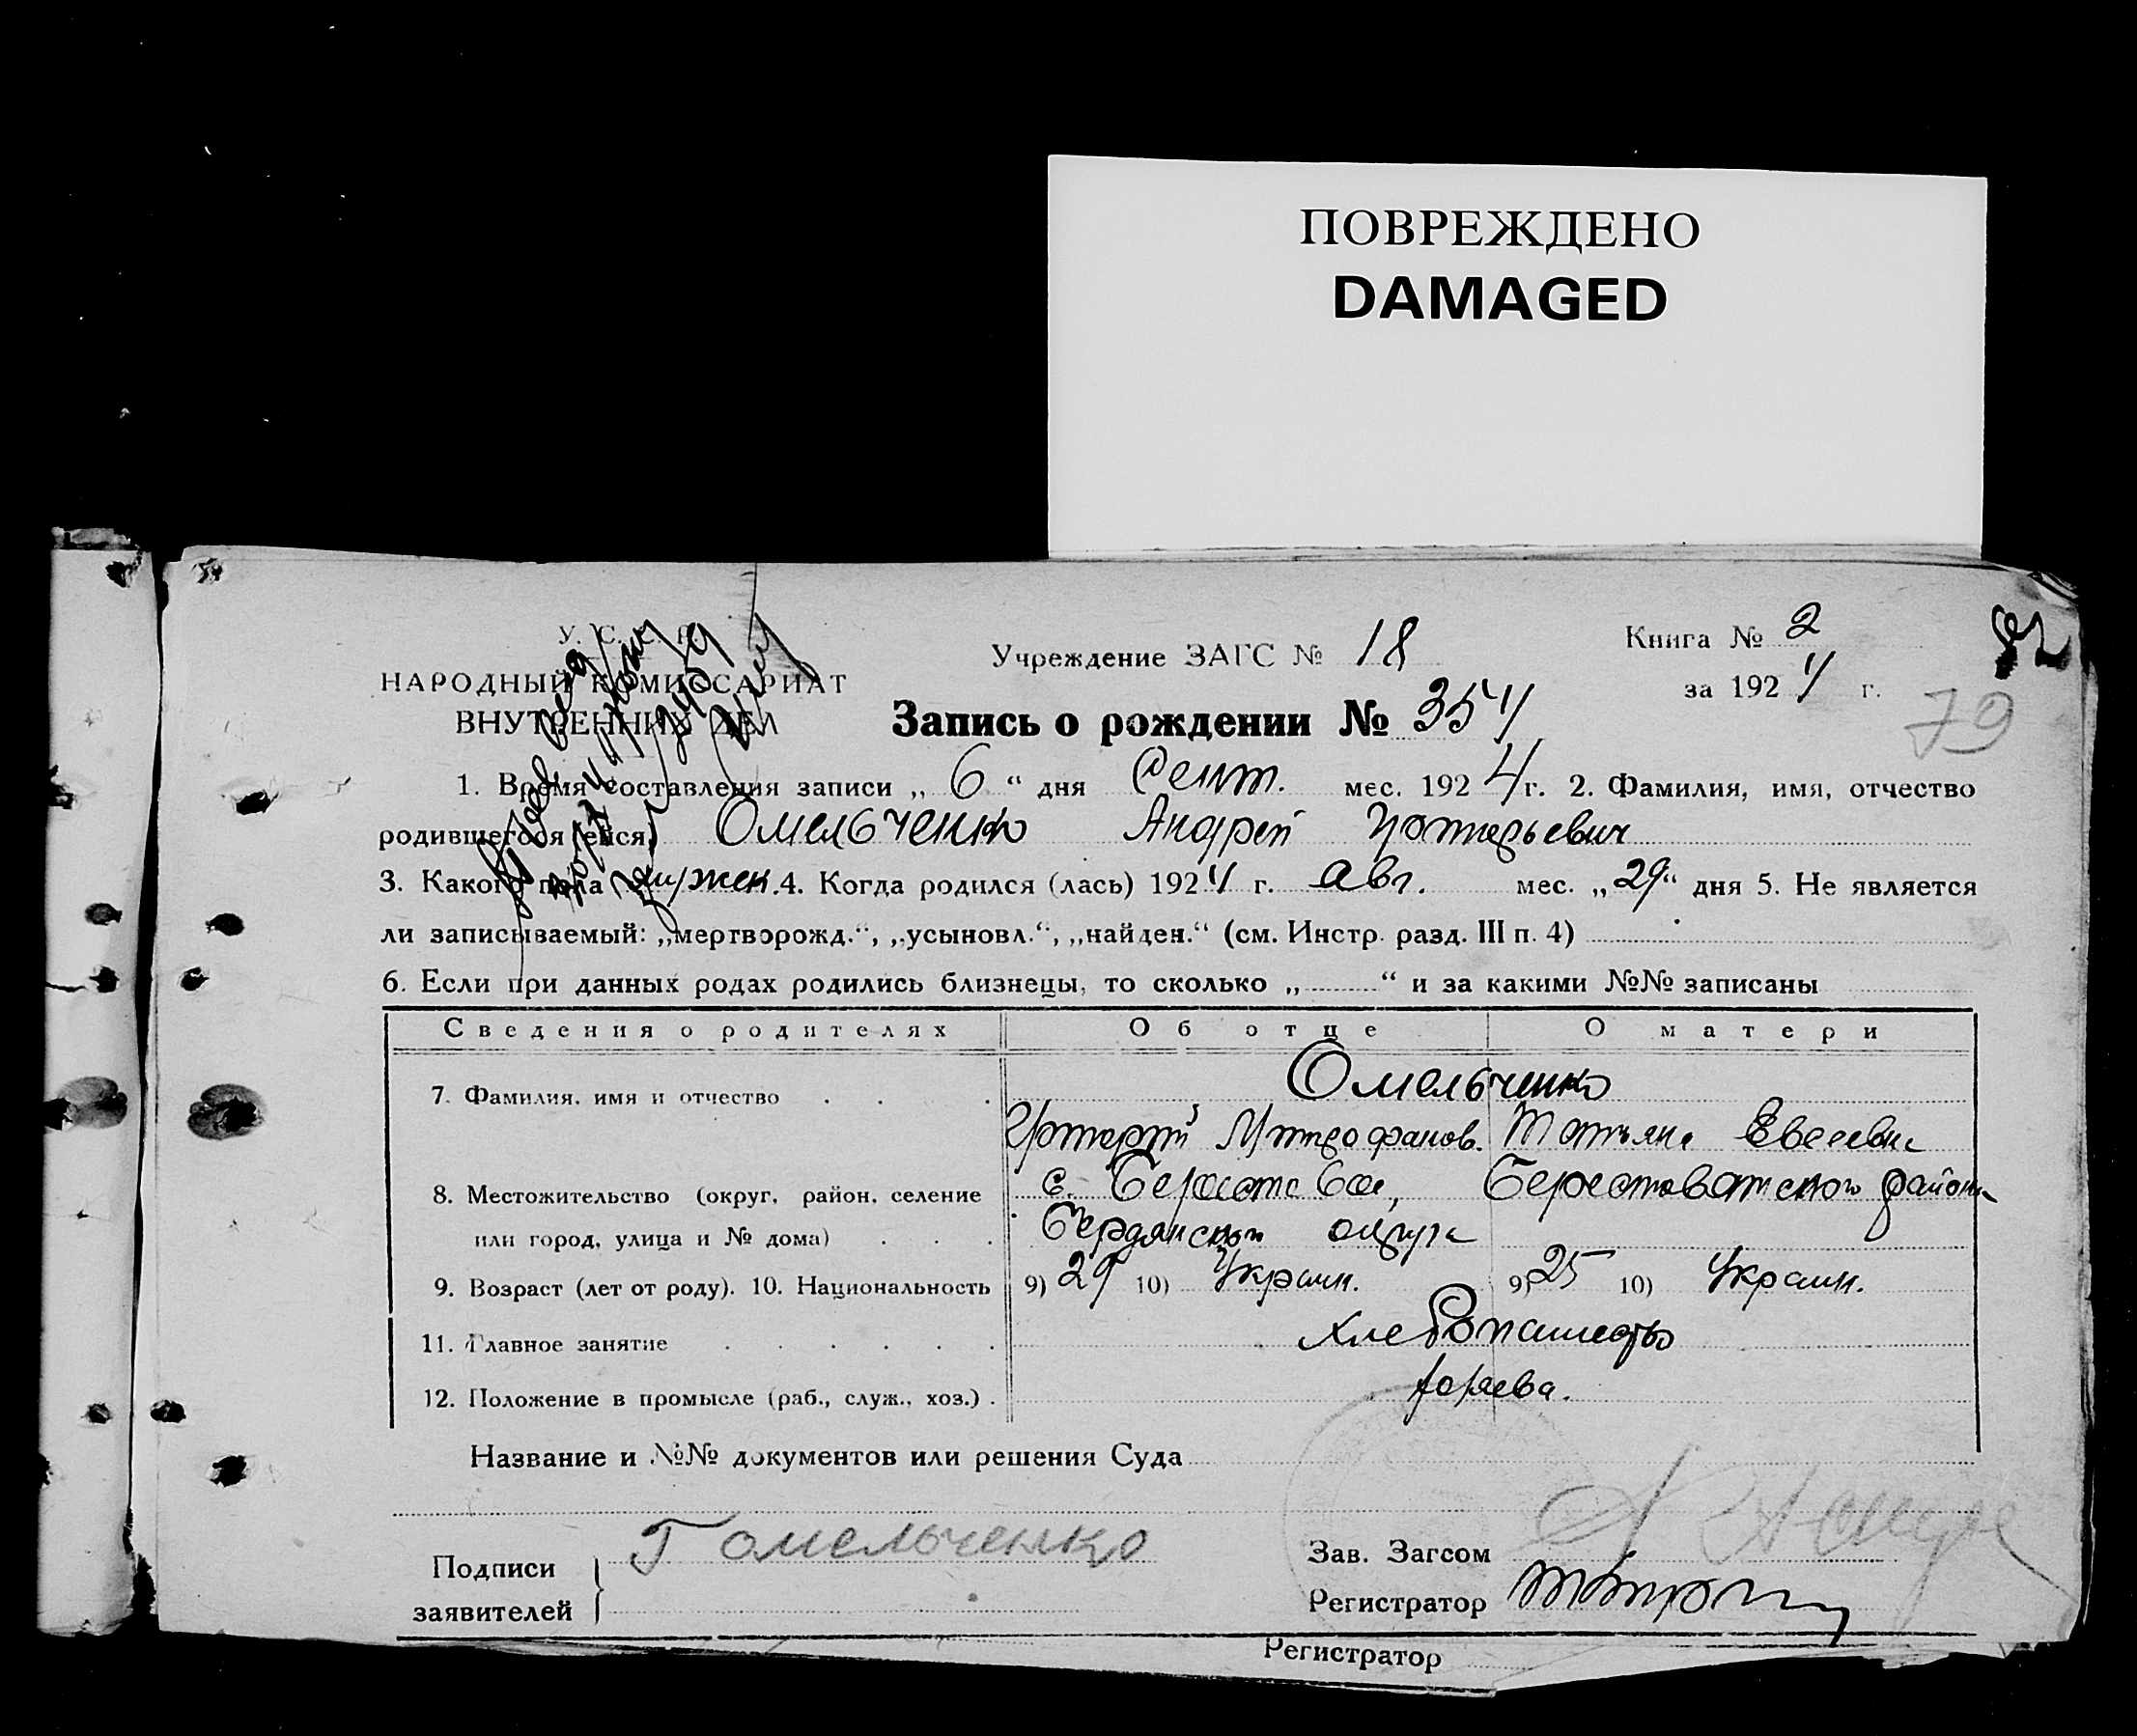 ПОВРЕЖДЕНО
DAMAGED
У. С. С. Р.
НАРОДНЫЙ КОМИССАРИАТ
ВНУТРЕННИХ ДЕЛ
Учреждение ЗАГС № 18
Книга № 2
за 1924 г.
82
79
Запись о рождении № 354
1. Время составления записи „ 6 “ дня Сент. мес. 1924 г. 2. Фамилия, имя, отчество
родившегося (ейся) Омельченко Андрей
3. Какого пола мужск. 4. Когда родился (лась) 1924 г. авг. мес. „ 29 “ дня 5. Не является
ли записываемый: „мертворожд.“, „усыновл.“, „найден.“ (см. Инстр. разд. III п. 4)
6. Если при данных родах родились близнецы, то сколько „ “ и за какими №№ записаны
Сведения о родителях Об отце О матери
7. Фамилия, имя и отчество Омельченко
Митрофанов. Татьяна Евсеевна
8. Местожительство (округ, район, селение с. Берестовое, Берестоватского района
или город, улица и № дома) Бердянского округа
9. Возраст (лет от роду). 10. Национальность 9) 29 10) Украин. 9) 25 10) Украин.
11. Главное занятие Хлебопашество
12. Положение в промысле (раб., служ., хоз.) хозяева.
Название и №№ документов или решения Суда
Подписи
заявителей
Г Омельченко
Зав. Загсом
Регистратор
Регистратор